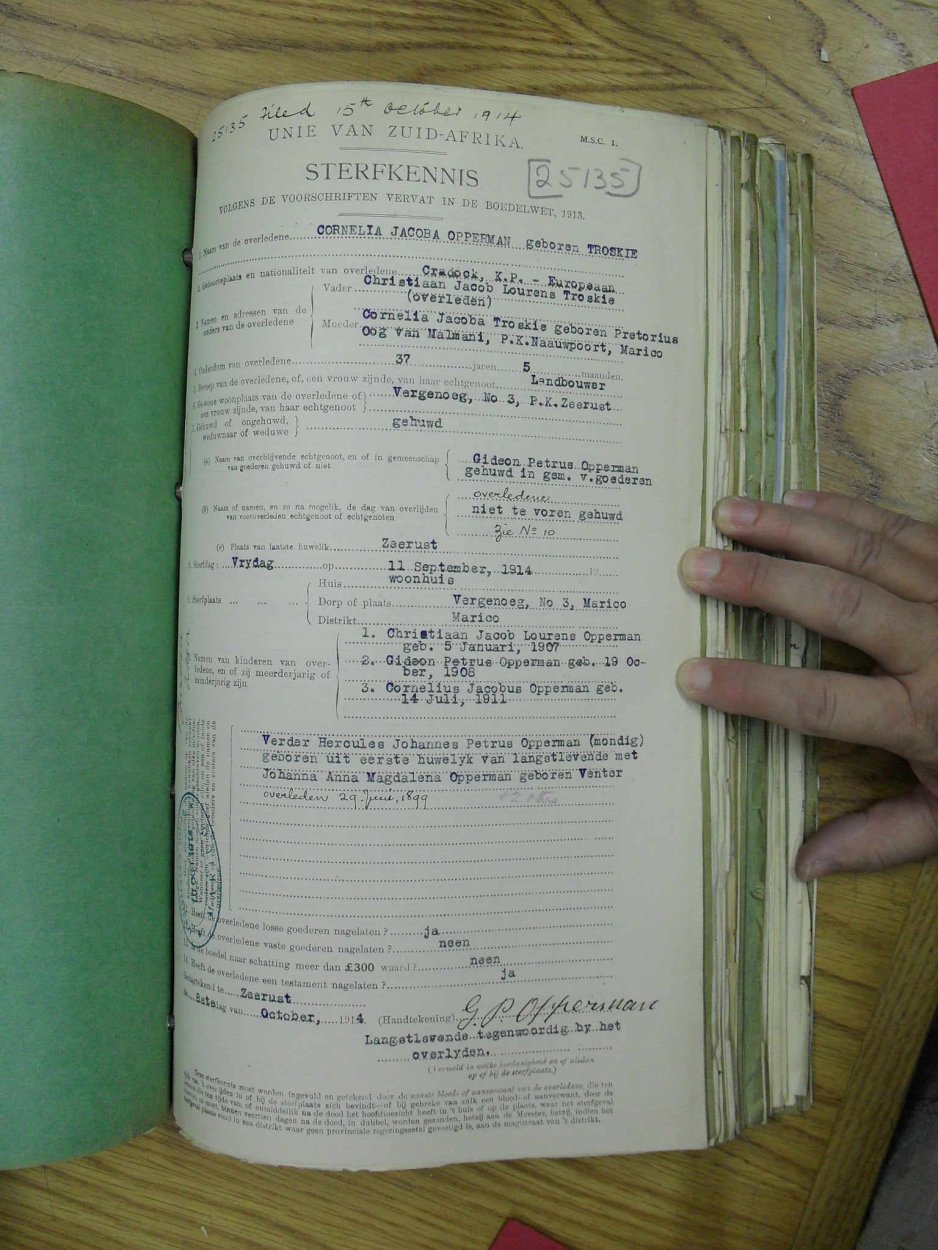 25135 Filed 15th October 1914
UNIE VAN ZUID-AFRIKA.
M.S.C. 1.
STERFKENNIS
25135
VOLGENS DE VOORSCHRIFTEN VERVAT IN DE BOEDELWET, 1913.
1. Naam van de overledene CORNELIA JACOBA OPPERMAN geboren TROSKIE
2. Geboorteplaats en nationaliteit van overledene Cradock, K.P. - Europeaan
3. Namen en adressen van de ouders van de overledene
Vader Christiaan Jacob Lourens Troskie
(overleden)
Moeder Cornelia Jacoba Troskie geboren Pretorius
Oog van Malmani, P.K.Naauwpoort, Marico
4. Ouderdom van overledene 37 jaren 5 maanden.
5. Beroep van de overledene, of, een vrouw zijnde, van haar echtgenoot Landbouwer
6. Gewone woonplaats van de overledene of een vrouw zijnde, van haar echtgenoot Vergenoeg, No 3, P.K.Zeerust
7. Gehuwd of ongehuwd, weduwnaar of weduwe gehuwd
(a) Naam van overblijvende echtgenoot, en of in gemeenschap van goederen gehuwd of niet
Gideon Petrus Opperman
gehuwd in gem. v.goederen
(b) Naam of namen, en zo na mogelik, de dag van overlijden van vooroverleden echtgenoot of echtgenoten
overledene
niet te voren gehuwd
Zie No 10
(c) Plaats van laatste huwelik Zeerust
8. Sterfdag: Vrydag op 11 September, 1914 19
9. Sterfplaats
Huis woonhuis
Dorp of plaats Vergenoeg, No 3, Marico
Distrikt Marico
Namen van kinderen van overledene, en of zij meerderjarig of minderjarig zijn
1. Christiaan Jacob Lourens Opperman
geb. 5 Januari, 1907
2. Gideon Petrus Opperman geb. 19 Oc-
ber, 1908
3. Cornelius Jacobus Opperman geb.
14 Juli, 1911
Verder Hercules Johannes Petrus Opperman (mondig)
geboren uit eerste huwelyk van langstlevende met
Johanna Anna Magdalena Opperman geboren Venter
overleden 29 Juni, 1899
Heeft de overledene losse goederen nagelaten? ja
Heeft de overledene vaste goederen nagelaten? neen
Is de boedel naar schatting meer dan £300 waard? neen
14. Heeft de overledene een testament nagelaten? ja
Gedagtekend te Zeerust
de 8ste dag van October, 1914.
(Handtekening) G. P. Opperman
Langstlevende tegenwoordig by het
overlyden.
(Vermeld in welke hoedanigheid en of aledan
op of bij de sterfplaats.)
Deze sterfkennis moet worden ingevuld en getekend door de naaste bloed- of aanverwant van de overledene, die ten
tijde van 't overlijden in of bij de sterfplaats zich bevindt—of bij gebreke van zulk een bloed- of aanverwant, door de
persoon die ten tijde van, of onmiddellik na de dood het hoofdtoezicht heeft in 't huis of op de plaats, waar het sterfgeval
binnen veertien dagen na de dood, in dubbel, worden gezonden, hetzij aan de Meester, hetzij, indien het
sterfgeval plaats vond in een distrikt waar geen provinciale regeringszetel gevestigd is, aan de magistraat van 't distrikt.